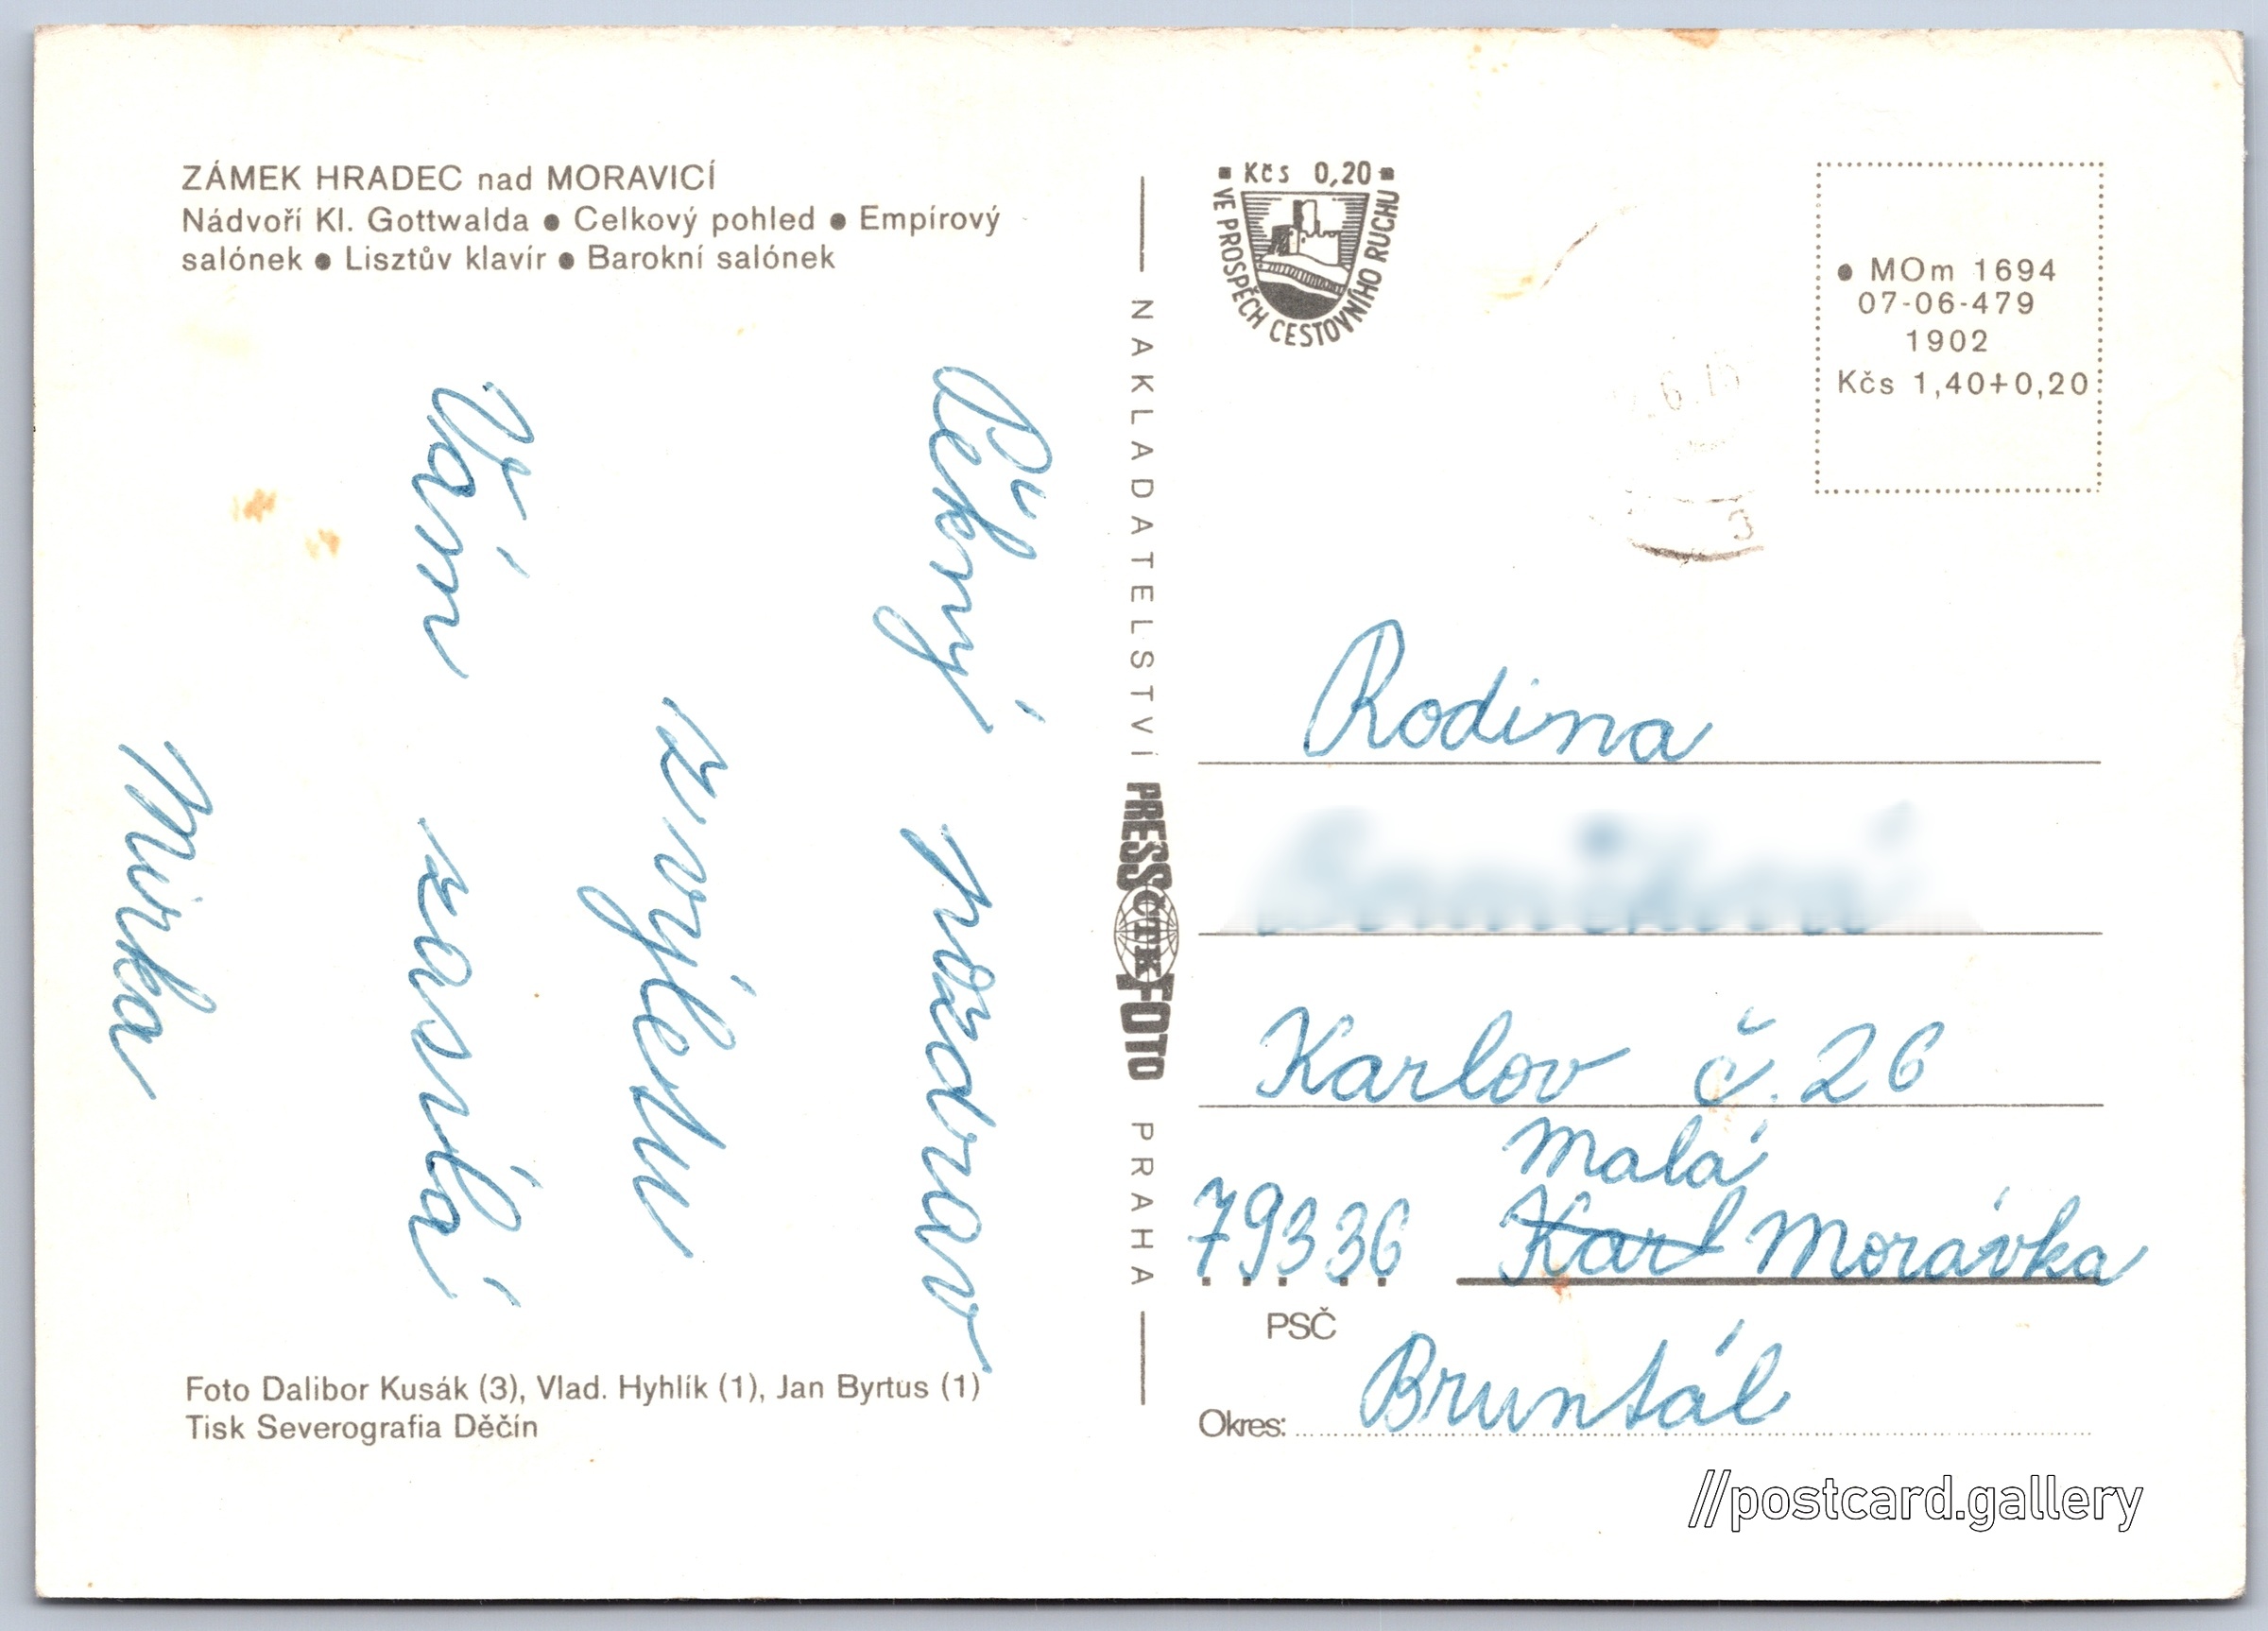 ZÁMEK HRADEC nad MORAVICÍ
Nádvoří Kl. Gottwalda ● Celkový pohled ● Empírový
salónek ● Lisztův klavír ● Barokní salónek
Pěkný pozdrav
z výletu
Vám zasílá
Mirka
Foto Dalibor Kusák (3), Vlad. Hyhlík (1), Jan Byrtus (1)
Tisk Severografia Děčín
NAKLADATELSTVÍ PRESSFOTO PRAHA
ČTK
Kčs 0,20
VE PROSPĚCH CESTOVNÍHO RUCHU
● MOm 1694
07-06-479
1902
Kčs 1,40+0,20
Rodina
Karlov č. 26
Malá
79336 Karl Morávka
PSČ
Okres: Bruntál
//postcard.gallery